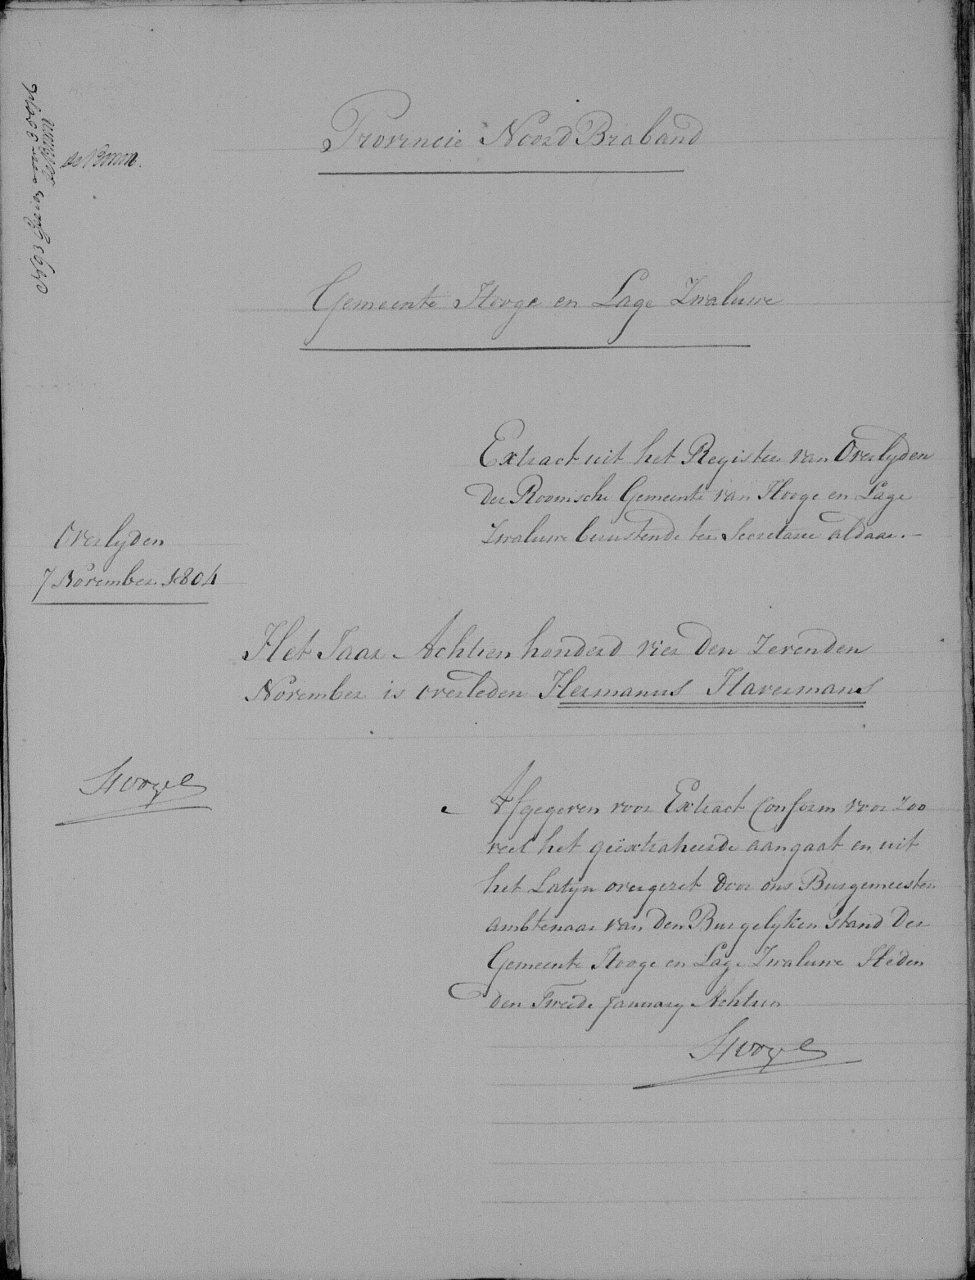 Provincie Noord Braband
de Bonm.
Gemeente Hooge en Lage Zwaluwe
Extract uit het Register van Overlyden
der Roomsche Gemeente van Hooge en Lage
Zwaluwe berustende ter Secretarie aldaar.—
Overlyden
7 November 1804
Het Jaar Achtien honderd vier den zevenden
November is overleden Hermanus Havermans
Afgegeven voor Extract Conform voor zoo
veel het geëxtraheerde aangaat en uit
het Latyn overgezet door ons Burgemeester
ambtenaar van den Burgelyken Stand der
Gemeente Hooge en Lage Zwaluwe Heden
den Tweede January Achtien